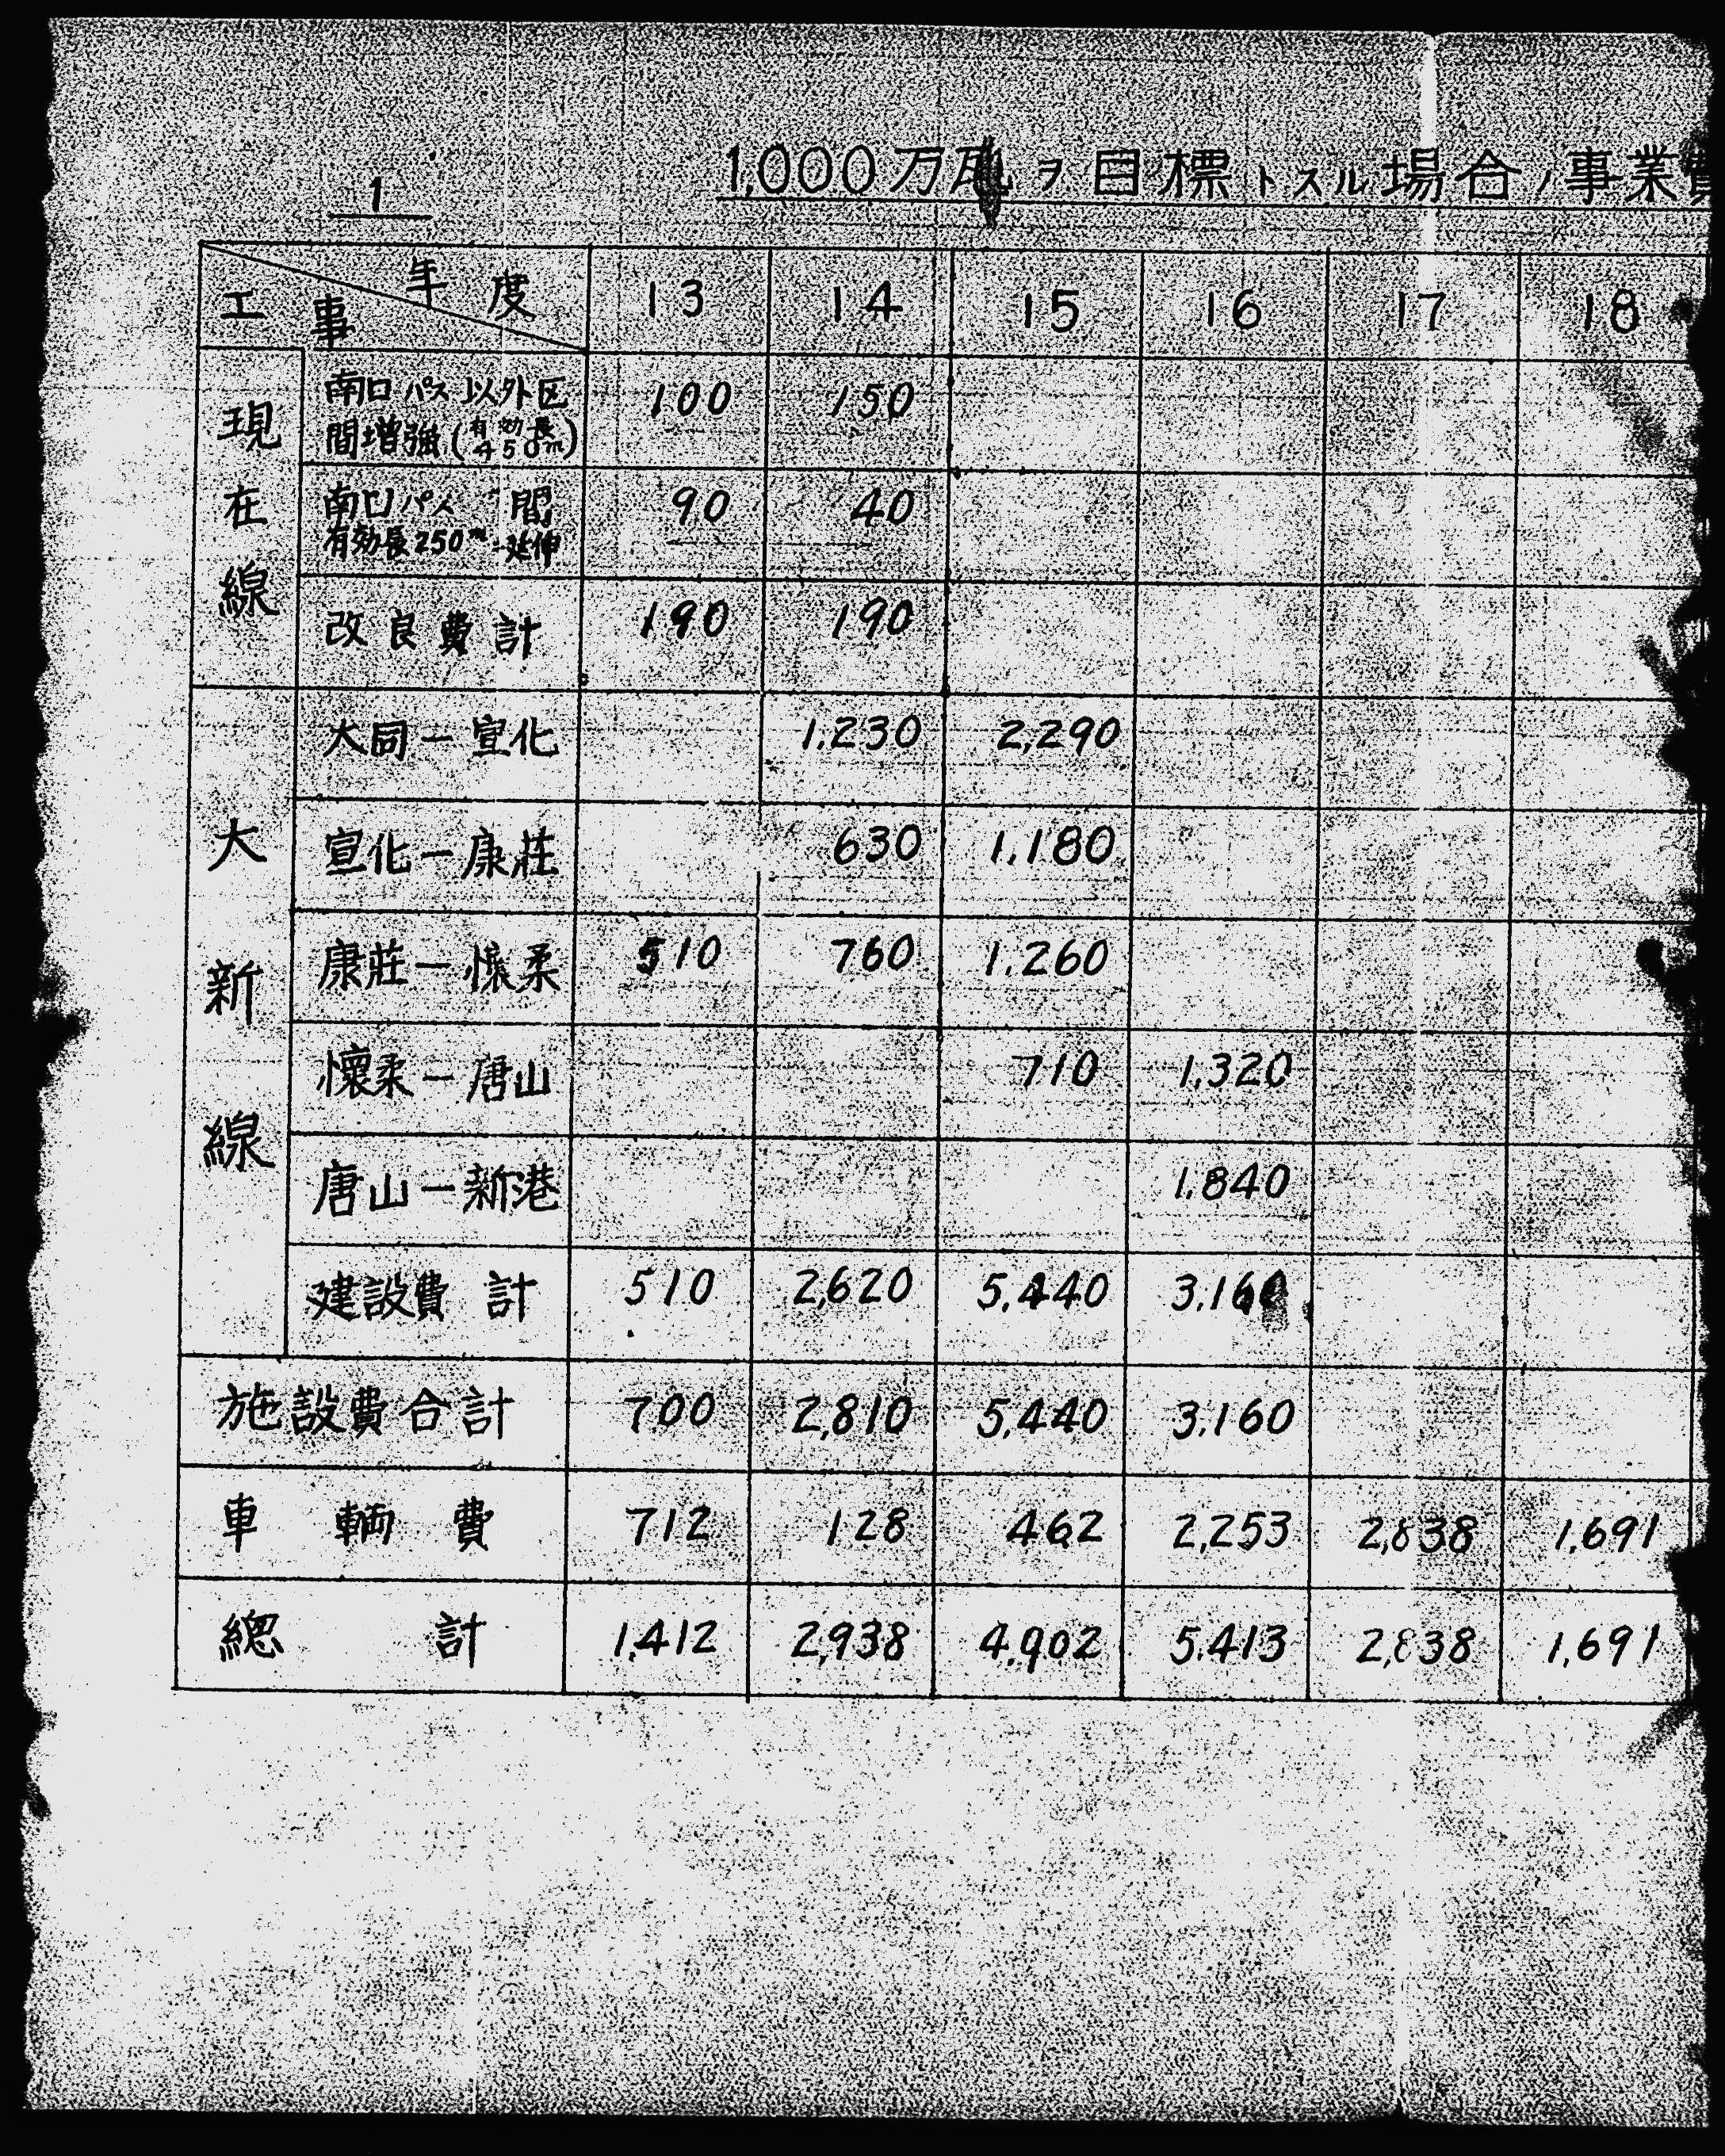 1
1,000万瓲ヲ目標トスル場合ノ事業費
工事 年度 13 14 15 16 17 18
現在線
南口パス以外区間増強(有効長450m) 100 150
南口パス 間
有効長250m 延伸 90 40
改良費計 190 190
大新線
大同一宣化 1,230 2,290
宣化一康莊 630 1,180
康莊一懷柔 510 760 1,260
懷柔一唐山 710 1,320
唐山一新港 1,840
建設費計 510 2,620 5,440 3,160
施設費合計 700 2,810 5,440 3,160
車輌費 712 128 462 2,253 2,838 1,691
總計 1,412 2,938 4,902 5,413 2,838 1,691